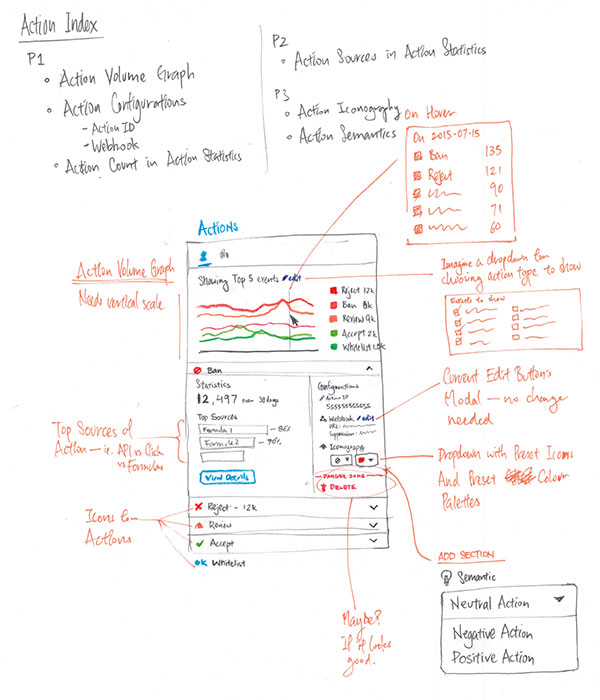 Action Index
P1
Action Volume Graph
Action Configurations
- Action ID
- Webhook
Action Count in Action Statistics
P2
Action Sources in Action Statistics
P3
Action Iconography
Action Semantics
On Hover
On 2015-07-15
Ban 135
Reject 121
90
71
60
Actions
Showing Top 5 events edit
Reject 12k
Ban 8k
Review 9k
Accept 2k
Whitelist
Action Volume Graph
Need vertical scale
Imagine a dropdown for
choosing action type to show
Events to show
Ban
Statistics
12,497 over 30 days
Top Sources
Formula 1 - 86%
Formula 2 - 70%
View Details
Configurations
Action ID
Webhook edit
URL:
Suppression:
Iconography
DANGER ZONE
DELETE
Current Edit Button's
Modal - no change
needed
Top Sources of
Action - ie. API vs Click
vs Formulas
Dropdown with Preset Icons
And Preset Colour
Palettes
Icons for
Actions
Reject - 12k
Review
Accept
OK Whitelist
Maybe?
If it looks
good.
ADD SECTION
Semantic
Neutral Action
Negative Action
Positive Action